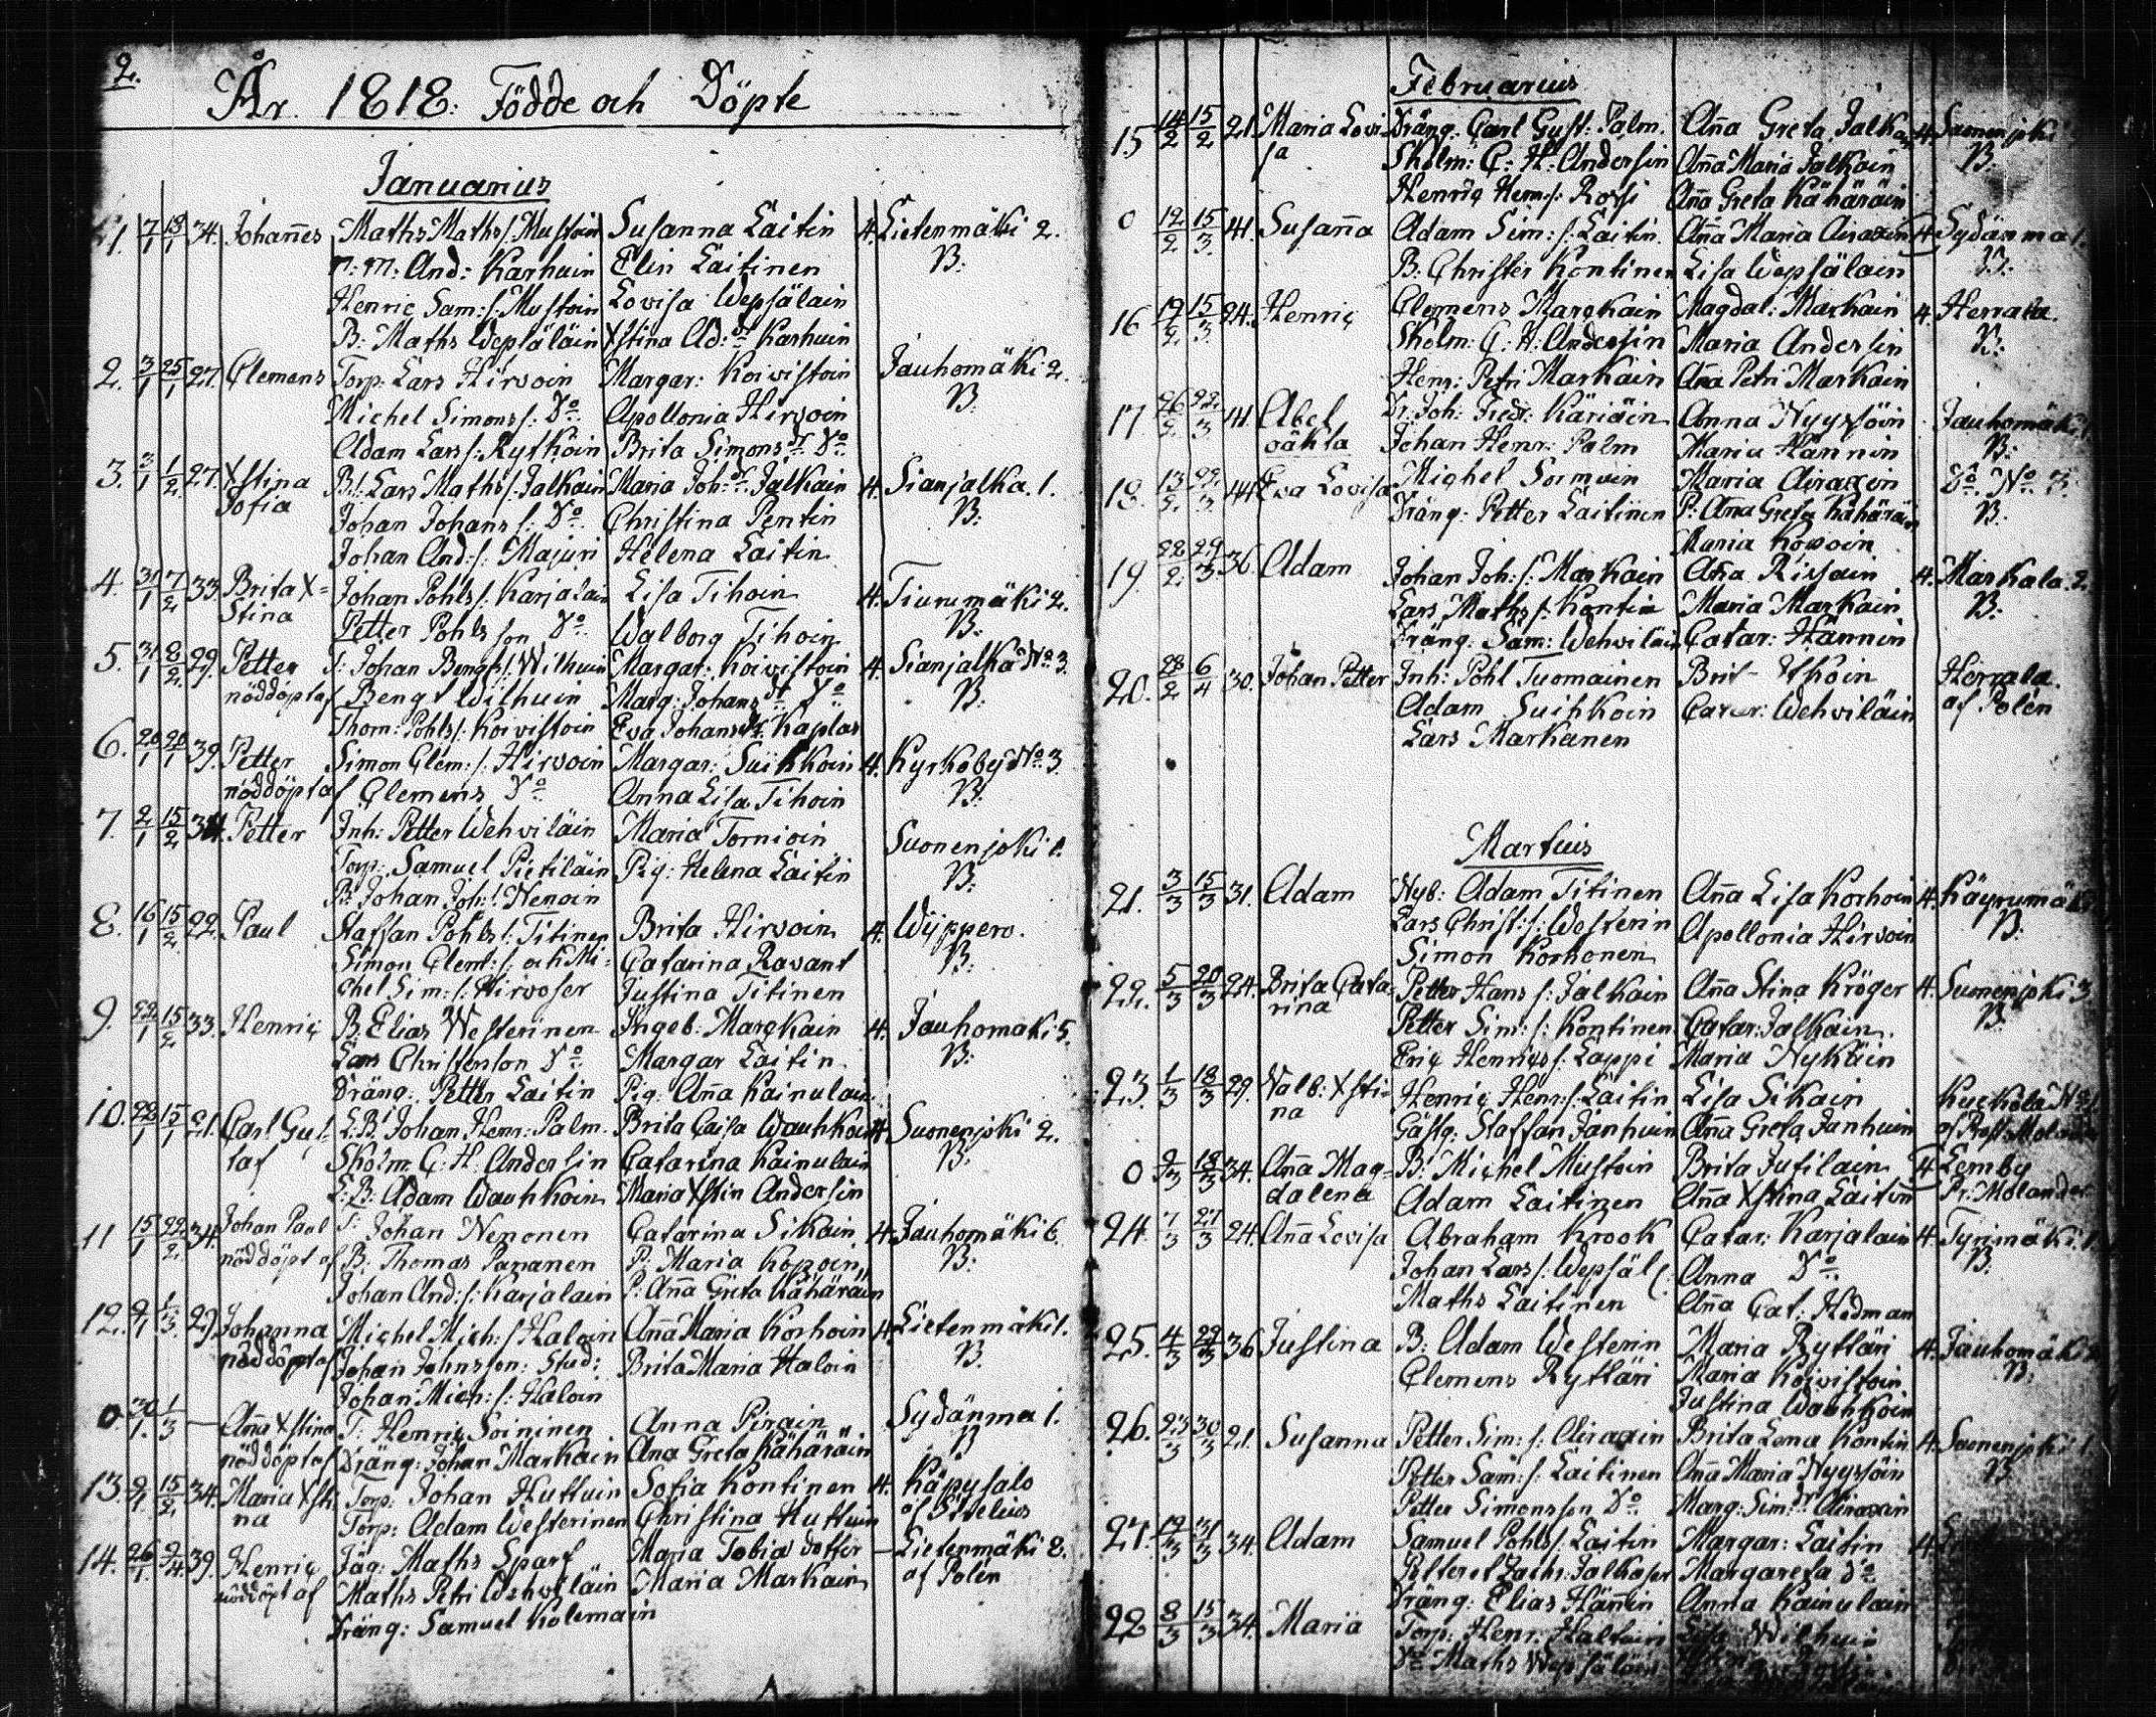 2.
År 1818: Födde och Döpte
Januarius
1. 7/1 13/1 34. Johannes Maths Maths s: Mustoin Susanna Laitin 4. Lietenmäki 2.
N: M: And: Karhuin Elin Laitinen B:
Henric Sam: s: Mustoin Lovisa Wepsäläin
B: Maths Wepsäläin Xstina Ad: dr Karhuin
2. 3/1 25/1 27. Clemens Torp: Lars Hirvoin Margar: Koivistoin Jauhomäki 2.
Michel Simons s: Do Apollonia Hirvoin B:
Adam Lars s: Rytköin Brita Simons dr Do
3. 3/1 1/2 27. Xstina B: Lars Maths s: Jalkain Maria Joh: dr Jalkain 4. Sianjalka. 1.
Sofia Johan Johans s: Do Christina Pentin B:
Johan And: s: Majuri Helena Laitin
4. 31/1 7/2 33 Brita X= Johan Pohls s: Karjalain Lisa Tihoin 4. Tiurumäki 2.
stina Petter Pohlsson Do Walborg Tihoin B:
5. 31/1 8/2 29. Petter J: Johan Bengts s: Wilhuin Margar: Koivistoin 4. Sianjalka No 3.
nöddöpt af Bengt Wilhuin Marg: Johans dr Do B:
Thom: Pohls s: Koivistoin Eva Johans dr Kaplas
6. 20/1 20/1 39. Petter Simon Clem: s: Hirvoin Margar: Suihkoin 4. Kyrkoby No 3.
nöddöpt af Clemens Do Anna Lisa Tihoin B:
7. 2/1 15/2 34. Petter Inh: Petter Wehviläin Maria Tornioin Suonenjoki 1.
Torp: Samuel Pietiläin Pig: Helena Laitin B:
B: Johan Joh: s: Nenoin
8. 16/1 15/2 22. Paul Staffan Pohls s: Titinen Brita Hirvoin 4. Wijppero.
Simon Clem: s: och Mi- Catarina Ravant B:
chel Sim: s: Hirvoser Justina Titinen
9. 22/1 15/2 33. Henric B. Elias Westerinen Ingeb: Marckain 4. Jauhomäki 5.
Lars Christersson Do Margar Laitin B:
Dräng: Petter Laitin Pig: Aña Kainulain
10. 22/1 15/1 21. Carl Gus- L:B: Johan Henr: Palm. Brita Caisa Wauhkoin 4. Suonenjoki 2.
taf Skolm: C: H: Andersin Catarina Kainulain B:
L: B: Adam Wauhkoin Maria Xstin Andersin
11 15/1 22/2 34. Johan Paul J: Johan Nenonen Catarina Sikain 4. Jauhomäki 6.
nöddöpt af B: Thomas Pananen P: Maria Kopoin B:
Johan And: s: Karjalain P: Aña Greta Kähäräin
12. 2/1 1/3 29. Johanna Michel Mich: s: Haloin Aña Maria Korhoin 4. Lietenmäki 1.
nöddöpt af Johan Johnsson: Stud: Brita Maria Haloin B.
Johan Mich: s: Haloin
0. 30/1 1/3 — Aña Xstina T: Henric Soininen Anna Pirain Sydänma 1.
nöddöpt af Dräng: Johan Markain Ana Greta Kähäräin B
13. 2/1 15/2 34. Maria Xsti Torp: Johan Huttuin Sofia Kontinen 4. Käpysalo
na Torp: Adam Westerinen Christina Huttuin af Sirelius
14. 26/1 2/4 39. Henric Jäg: Maths Sparf Maria Tobia dotter — Lietenmäki 8.
nöddöpt af Maths Petri Wehviläin Maria Markain af Polén
Dräng: Samuel Kolemain
Februarius
15 14/2 15/2 21. Maria Lovi- Dräng: Carl Gust: Palm. Aña Greta Jalkain 4. Suonenjoki
sa Skolm: C: H: Andersin Aña Maria Jalkain B:
Henric Henr: s: Rossi Aña Greta Kähäräin
0 12/2 15/3 41. Susaña Adam Sim: s: Laitin. Aña Maria Airaxin 4. Sydänma 1.
B: Christer Kontinen Lisa Wepsälain B:
16 19/2 15/3 24. Henric Clemens Marckain Magdal: Markain 4. Herrala.
Skolm: C: H: Andersin Maria Andersin B:
Henr: Petri Markain Aña Petri Markain
17 26/2 22/3 41. Abel Dr: Joh: Fredr: Käriäin Anna Nyyssöin Jauhomäki 1.
oäkta Johan Henr: Palm Maria Hännin B:
18. 13/2 22/3 44. Eva Lovisa Michel Sormuin Maria Airaxin Do No 3.
Dräng: Petter Laitinen P: Aña Greta Kähäräin B:
Maria Kovoin
19. 22/2 29/3 36. Adam Johan Joh: s: Markain Aña Rissain 4. Markala. 2.
Lars Maths s: Kontin Maria Markain B:
Dräng: Sam: Wehviläin Catar: Hännin
20. 28/2 6/4 30. Johan Petter Inh: Pohl Tuomainen Brit- Ihoin Herrala.
Adam Suihkoin Catar: Wehviläin af Polén
Lars Markanen
Martius
21. 3/3 15/3 31. Adam Nyb: Adam Titinen Aña Lisa Korhoin 4. Käyrumäki
Lars Christ: s: Westerin Apollonia Hirvoin B:
Simon Korhonen
22. 5/3 20/3 24. Brita Cata- Petter Hans s: Jalkain Aña Stina Kröger 4. Suonenjoki 3.
rina Petter Sim: s: Kontinen Catar: Jalkain B:
Eric Henrics s: Lappi Maria Nykäin
23. 1/3 18/3 29. Valb: Xsti- Henric Henr: s: Laitin Lisa Sikain
na Gästg: Staffan Janhuin Aña Greta Janhuin
0 2/3 18/3 34. Aña Mag- B: Michel Mustoin Brita Jutilain 4 Lemby
dalena Adam Laitinen Aña Xstina Laitin Pr: Molander
24. 7/3 27/3 24. Aña Lovisa Abraham Krook Catar: Karjalain 4. Tyrimäki 1.
Johan Lars s: Wepsäl Anna Do B:
Maths Laitinen Aña Cat: Hedman
25. 4/3 29/3 36 Justina B: Adam Westerin Maria Ryttäri 4. Jauhomäki
Clemens Ryttäri Maria Koivistoin B:
Justina Wauhkoin
26. 23/3 30/3 21. Susanna Petter Sim: s: Airaxin Brita Lena Kontin 4. Suonenjoki 1.
Petter Sam: s: Laitinen Aña Maria Nyyssöin B
Petter Simonsson Do Marg: Sim: dr Airaxin
27. 19/3 31/3 34. Adam Samuel Pohls s: Laitin Margar: Laitin 4.
Petter et Zachr: Jalkaser Margareta Do
Dräng: Elias Hännin Anna Kainulain
22 8/3 15/3 34. Maria Torp: Henr: Haltuin Lisa Wilhuin
Do Maths Wepsäläin